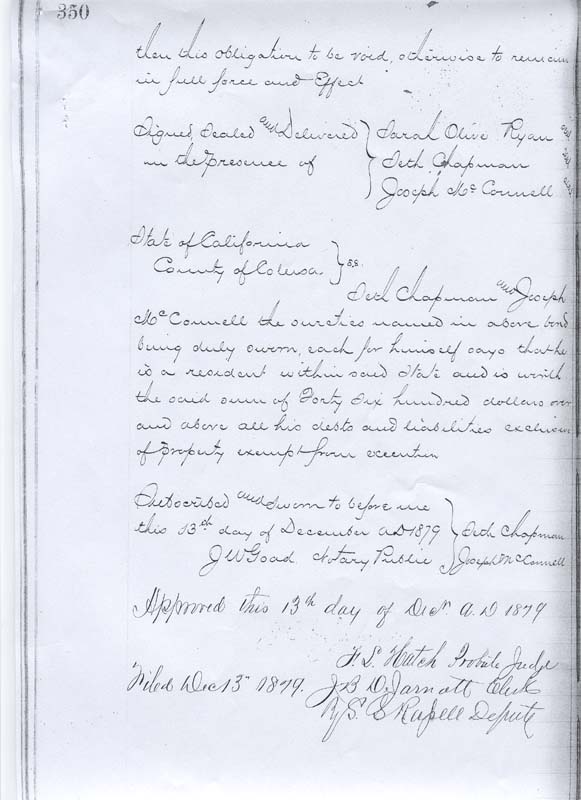 350
then this obligation to be void, otherwise to remain
in full force and Effect
Signed, Sealed and Delivered } Sarah Olive Ryan
in the presence of } Seth Chapman
Joseph Mc Connell
State of California
County of Colusa } ss
Seth Chapman and Joseph
Mc Connell the sureties named in above bond
being duly sworn, each for himself says that he
is a resident within said State and is worth
the said sum of Forty Six hundred dollars over
and above all his debts and liabilities exclusive
of property exempt from execution
Subscribed and sworn to before me
this 13th day of December A.D 1879 } Seth Chapman
J W Goad Notary Public } Joseph McConnell
Approved this 13th day of Decr A. D 1879
F. L. Hatch Probate Judge
Filed Dec 13" 1879. J B DeJarnatt Clerk
By S. Deputy